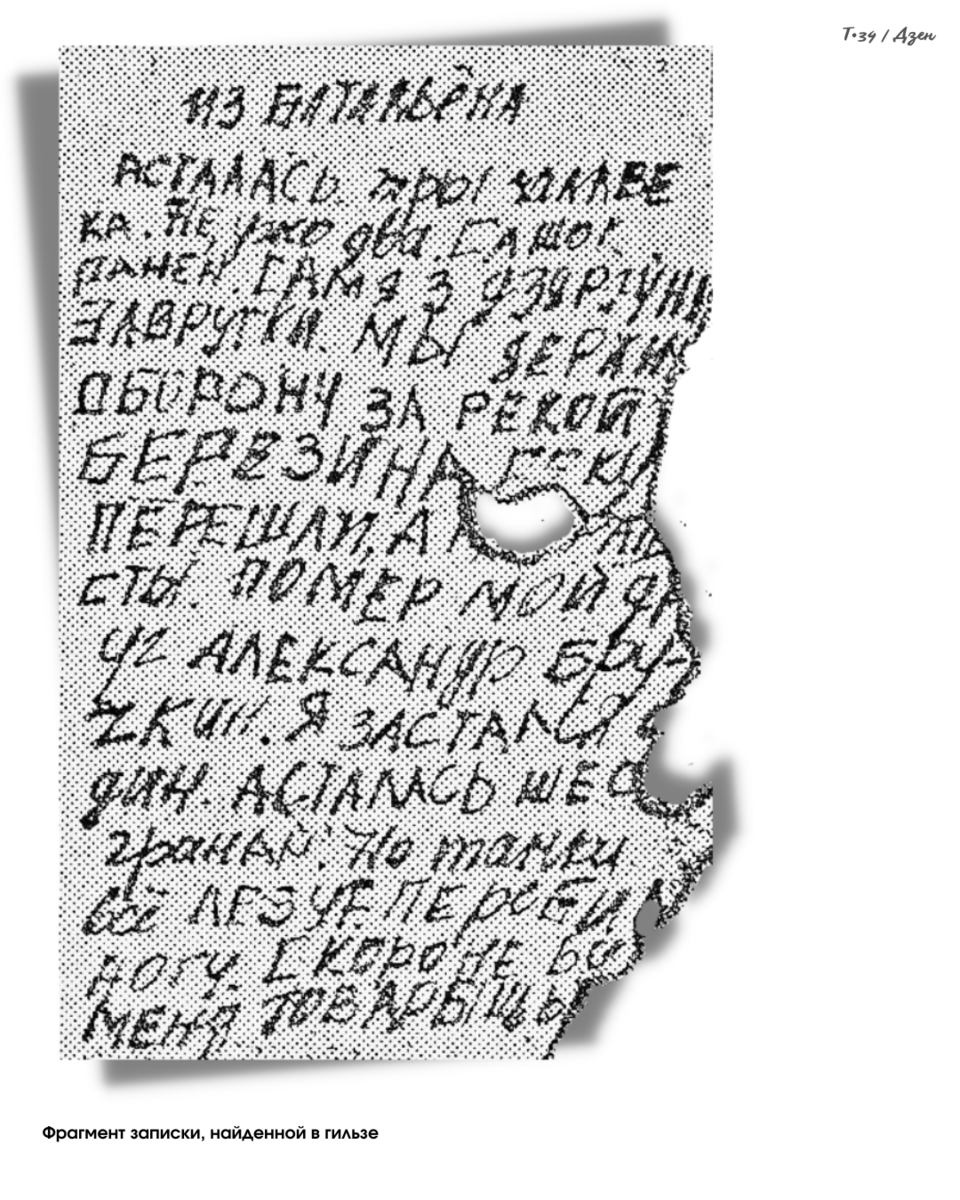 Т-34 / Дзен
ИЗ БАТАЛЬЁНА
АСТАЛАСЬ. тры чалаВЕ
КА. НЕ, ужо два. САШОК
РАНЕН. САМ Я З
МЫ ДЕРЖИ
ОБОРОНУ ЗА РЕКОЙ
БЕРЕЗИНА
ПЕРЕШЛИ. А
СТЫ. ПОМЕР МОЙ ДР
УГ АЛЕКСАНДР БРУ-
ZКИН. Я ЗАСТАЛСЯ
ДИН. АСТАЛАСЬ ШЕС
гранат. Но танки
всё ЛЕЗУТ. ПЕРЕБИ
НОГУ. СКОРО НЕ БУ
МЕНЯ ТОВАРЫЩЫ
Фрагмент записки, найденной в гильзе